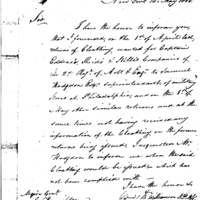 New York 10 May 1800
Sir
I have the honor to inform you
that I forwarded, on the 1st of April last,
returns of Cloathing wanted for Captain
Companies of
in 2d Regt. of Art & Eng to Samuel
Hodgdon Esqr superintendant of military
Stores at Philadelphia; and on the 1st of
May other similar returns and at the
same time not having received any
information of the Cloathing on the former
returns being forwarded I requested Mr
Hodgdon to inform me when the said
Cloathing would be forwarded which has
not been complied with
I have the honor to
Major Genl